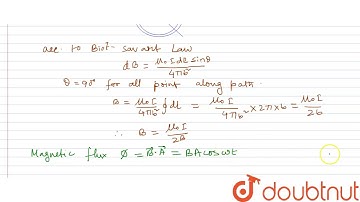 acc. to Biot- Savart Law
dB = μ₀ I dl sinθ / 4πb²
θ = 90° for all point along path.
B = μ₀ I / 4πb² ∮dl = μ₀ I / 4πb² × 2π × b = μ₀ I / 2b
∴ B = μ₀ I / 2B
Magnetic flux Ø = B⃗·A⃗ = BA cos ωt
doubtnut